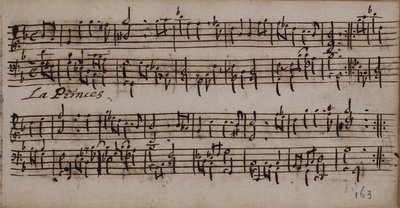 La Princes
163